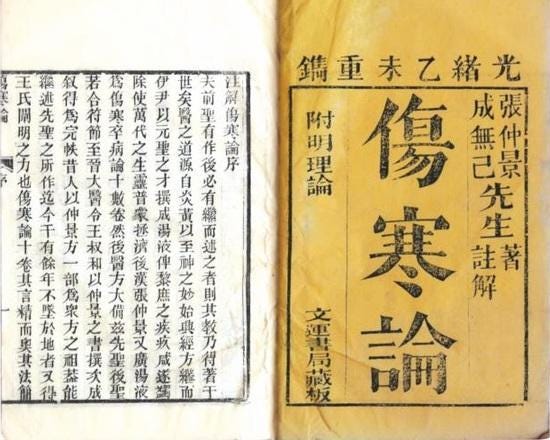 光緒乙未重鐫
張仲景
成無己
先生
著
註解
傷寒論
附明理論
文運書局藏板
注解傷寒論序
夫前聖有作後必有繼而述之者則其教乃得著于
世矣醫之道源自炎黃以至神之妙始興經方繼而
伊尹以元聖之才撰成湯液俾黎庶之疾疚咸遂蠲
除使萬代之生靈普蒙拯濟後漢張仲景又廣湯液
爲傷寒卒病論十數卷然後醫方大備茲先聖後聖
若合符節至晉太醫令王叔和以仲景之書撰次成
敘得爲完帙昔人以仲景方一部爲衆方之祖葢能
繼述先聖之所作迄今千有餘年不墜於地者又得
王氏闡明之力也傷寒論十卷其言精而奧其法簡
傷寒論
序
一